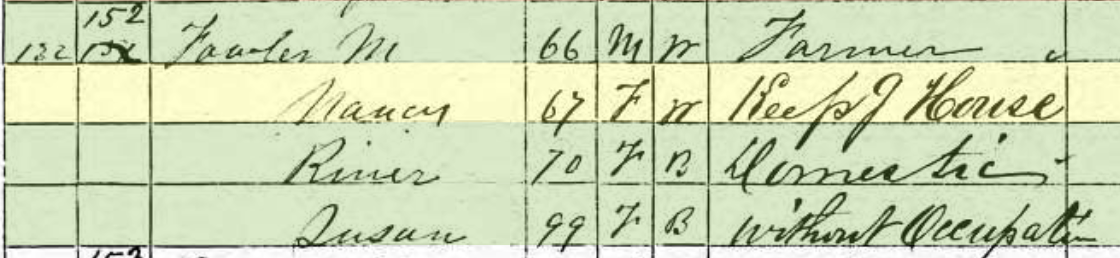 152
132 Fowler M 66 M W Farmer
Nancy 67 F W Keepg House
River 70 F B Domestic
Susan 99 F B without Occupation
153